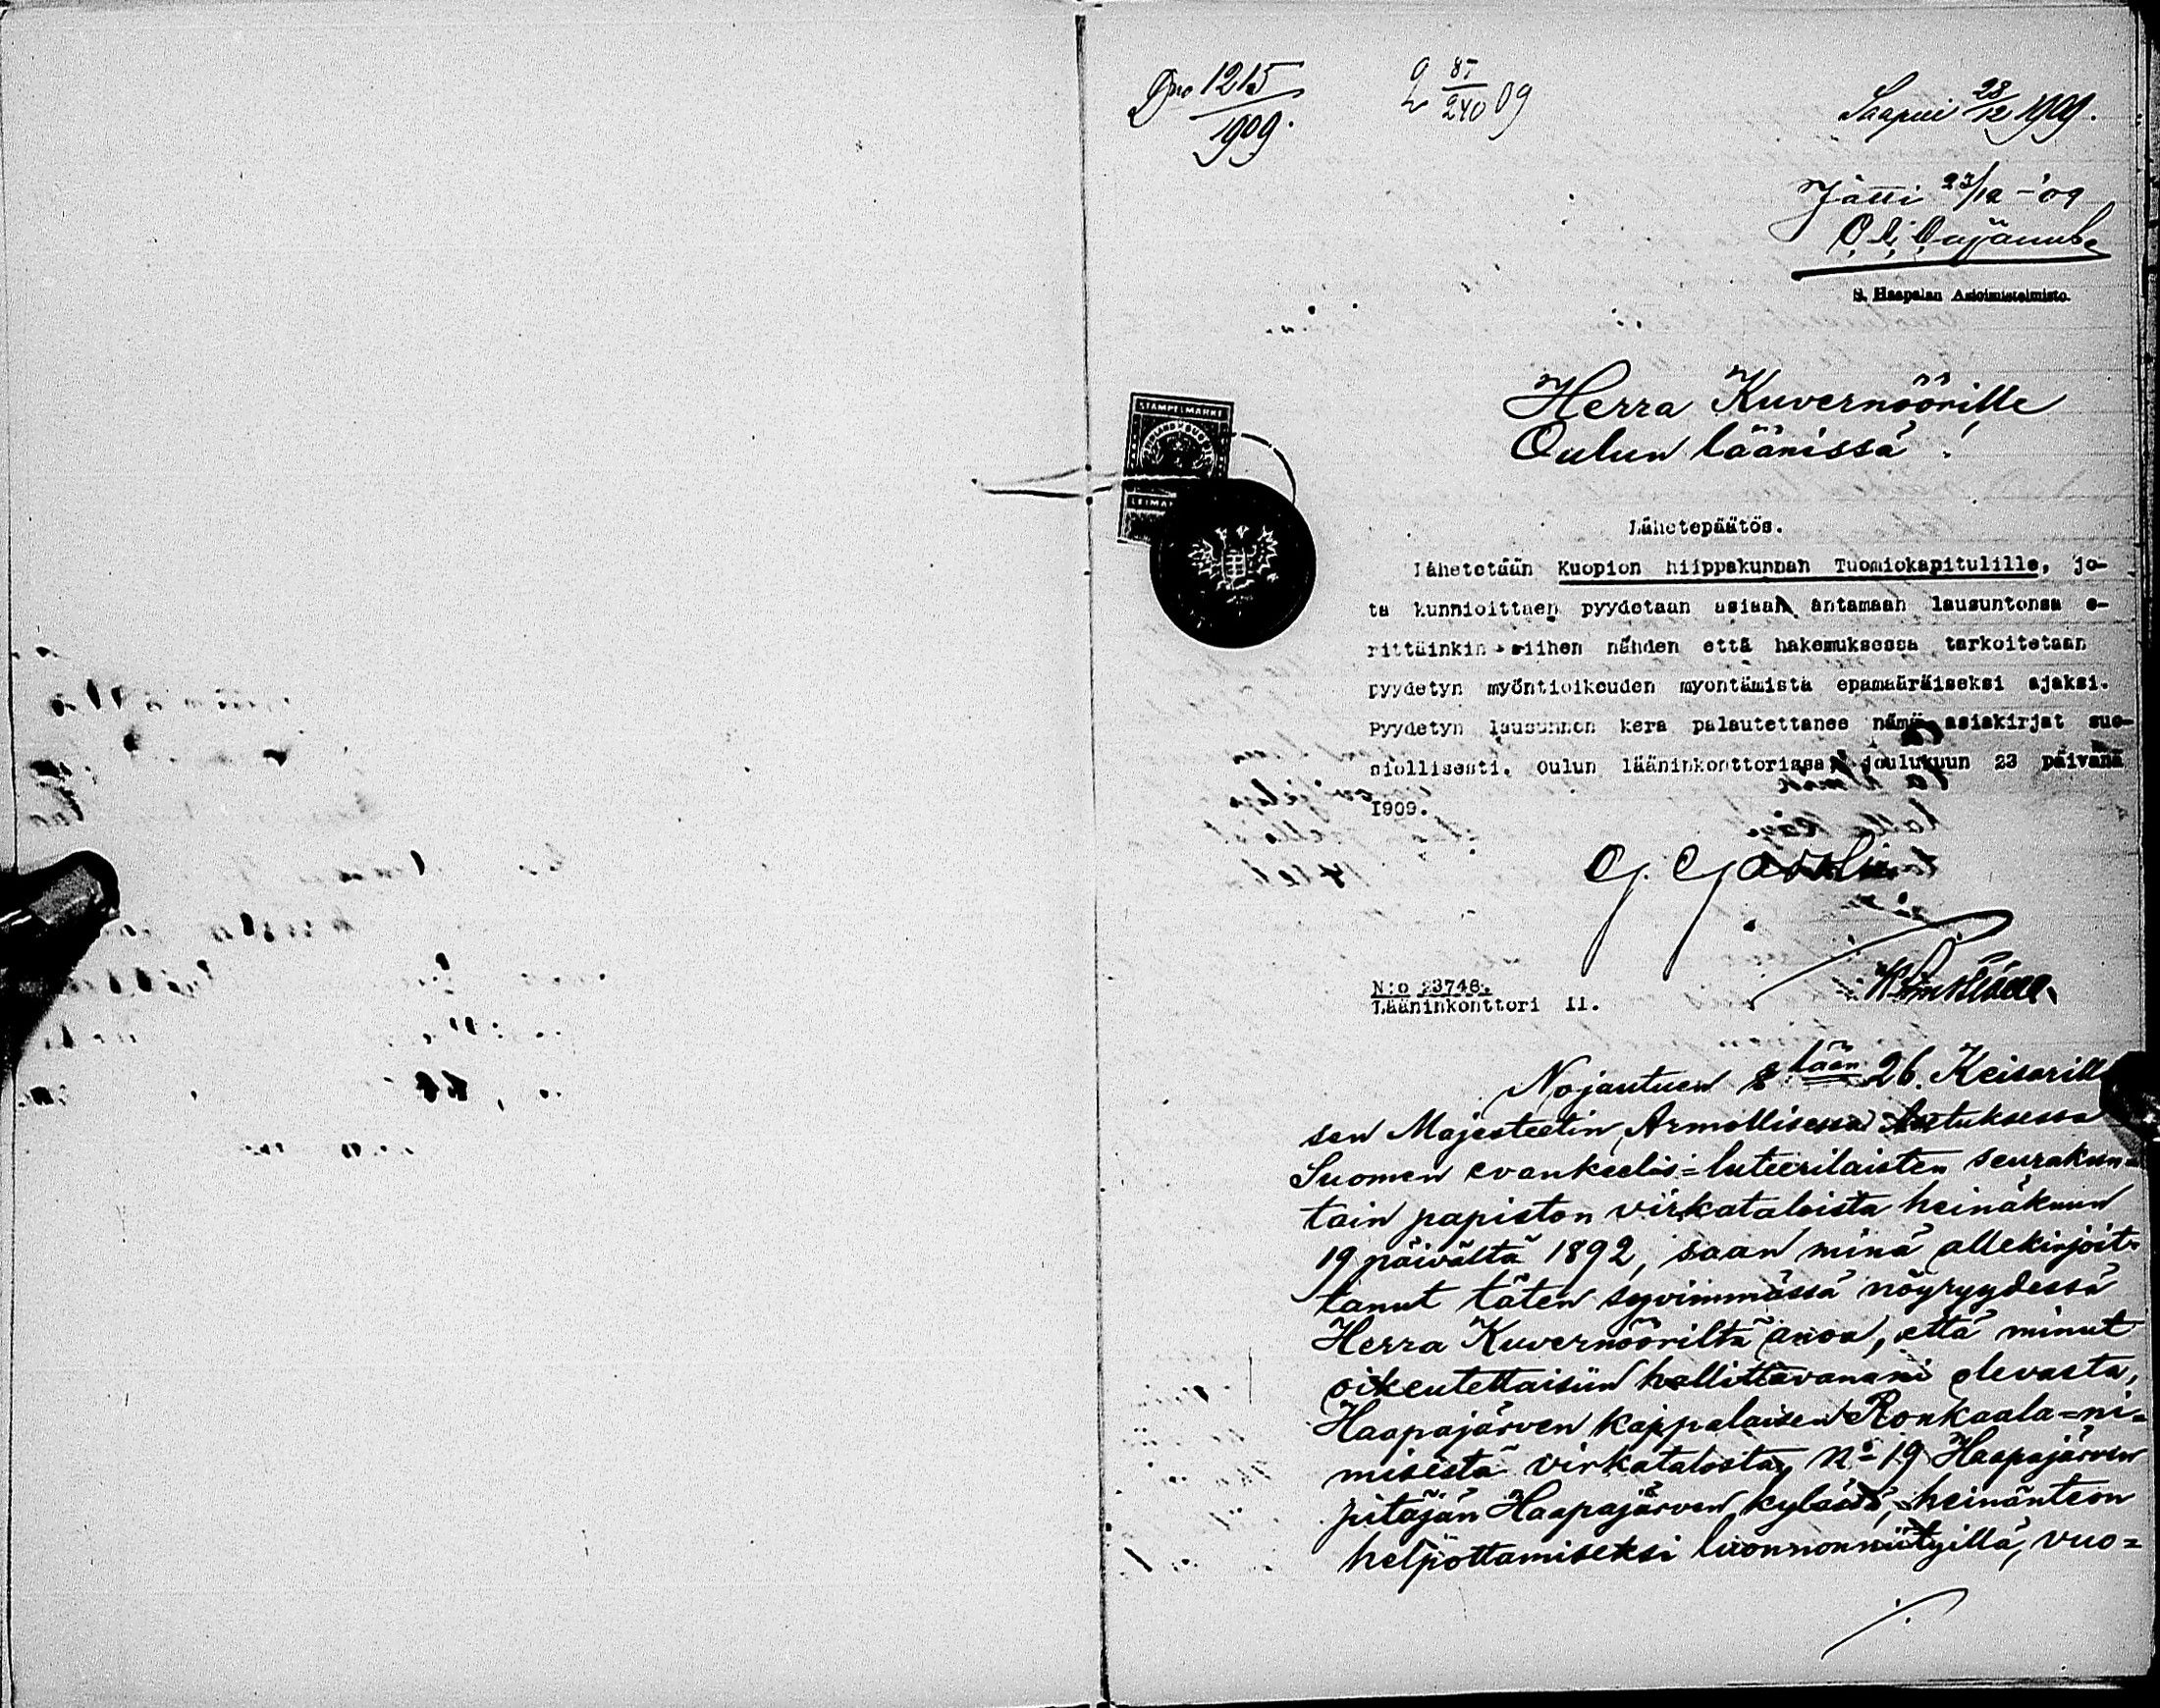 Dno 1215
1909.
87
240 09
Saapui 28/12 1909.
Jätti 23/12 - 09
S. Haapalan Asioimistoimisto.
Herra Kuvernöörille
Oulun läänissä!
STAMPELMARKE
FINLAND SUOMI
LEIMA
Lähetepäätös.
Lähetetään Kuopion hiippakunnan Tuomiokapitulille, jo-
ta kunnioittaen pyydetaan asiaan antamaan lausuntonsa e-
rittäinkin siihen nähden että hakemuksessa tarkoitetaan
pyydetyn myöntioikeuden myontämistä epamaäräiseksi ajaksi.
Pyydetyn lausunnon kera palautettanee nämä asiakirjat suo-
siollisesti. Oulun lääninkonttorissa joulukuun 23 päivänä
1909.
N:o 23748.
Lääninkonttori II.
Nojautuen § tään 26. Keisarilli
sen Majesteetin Armollisessa Asetuksessa
Suomen evankeelis=luteerilaisten seurakun=
tain papiston virkataloista heinäkuun
19 päivältä 1892, saan minä allekirjoit=
tanut täten syvimmässä nöyryydessä
Herra Kuvernööriltä anoa, että minut
oikeutettaisiin hallittavanani olevasta,
Haapajärven kappalaisen Ronkaala=ni=
misestä virkatalosta, No 19 Haapajärven
pitäjän Haapajärven kylässä, heinänteon
helpottamiseksi luonnonniityillä, vuo=
./.